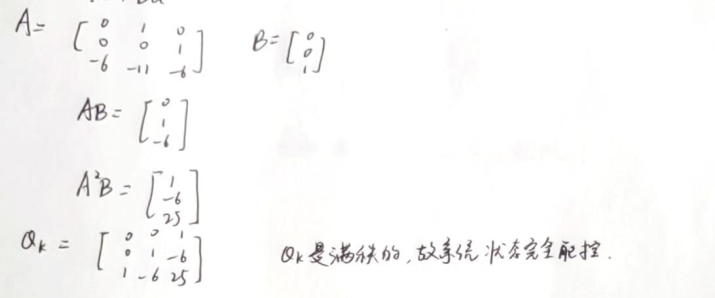 A= [ 0 1 0
0 0 1
-6 -11 -6 ] B= [ 0
0
1 ]
AB= [ 0
1
-6 ]
A²B= [ 1
-6
25 ]
Qk = [ 0 0 1
0 1 -6
1 -6 25 ] Qk是满秩的,故系统状态完全能控.